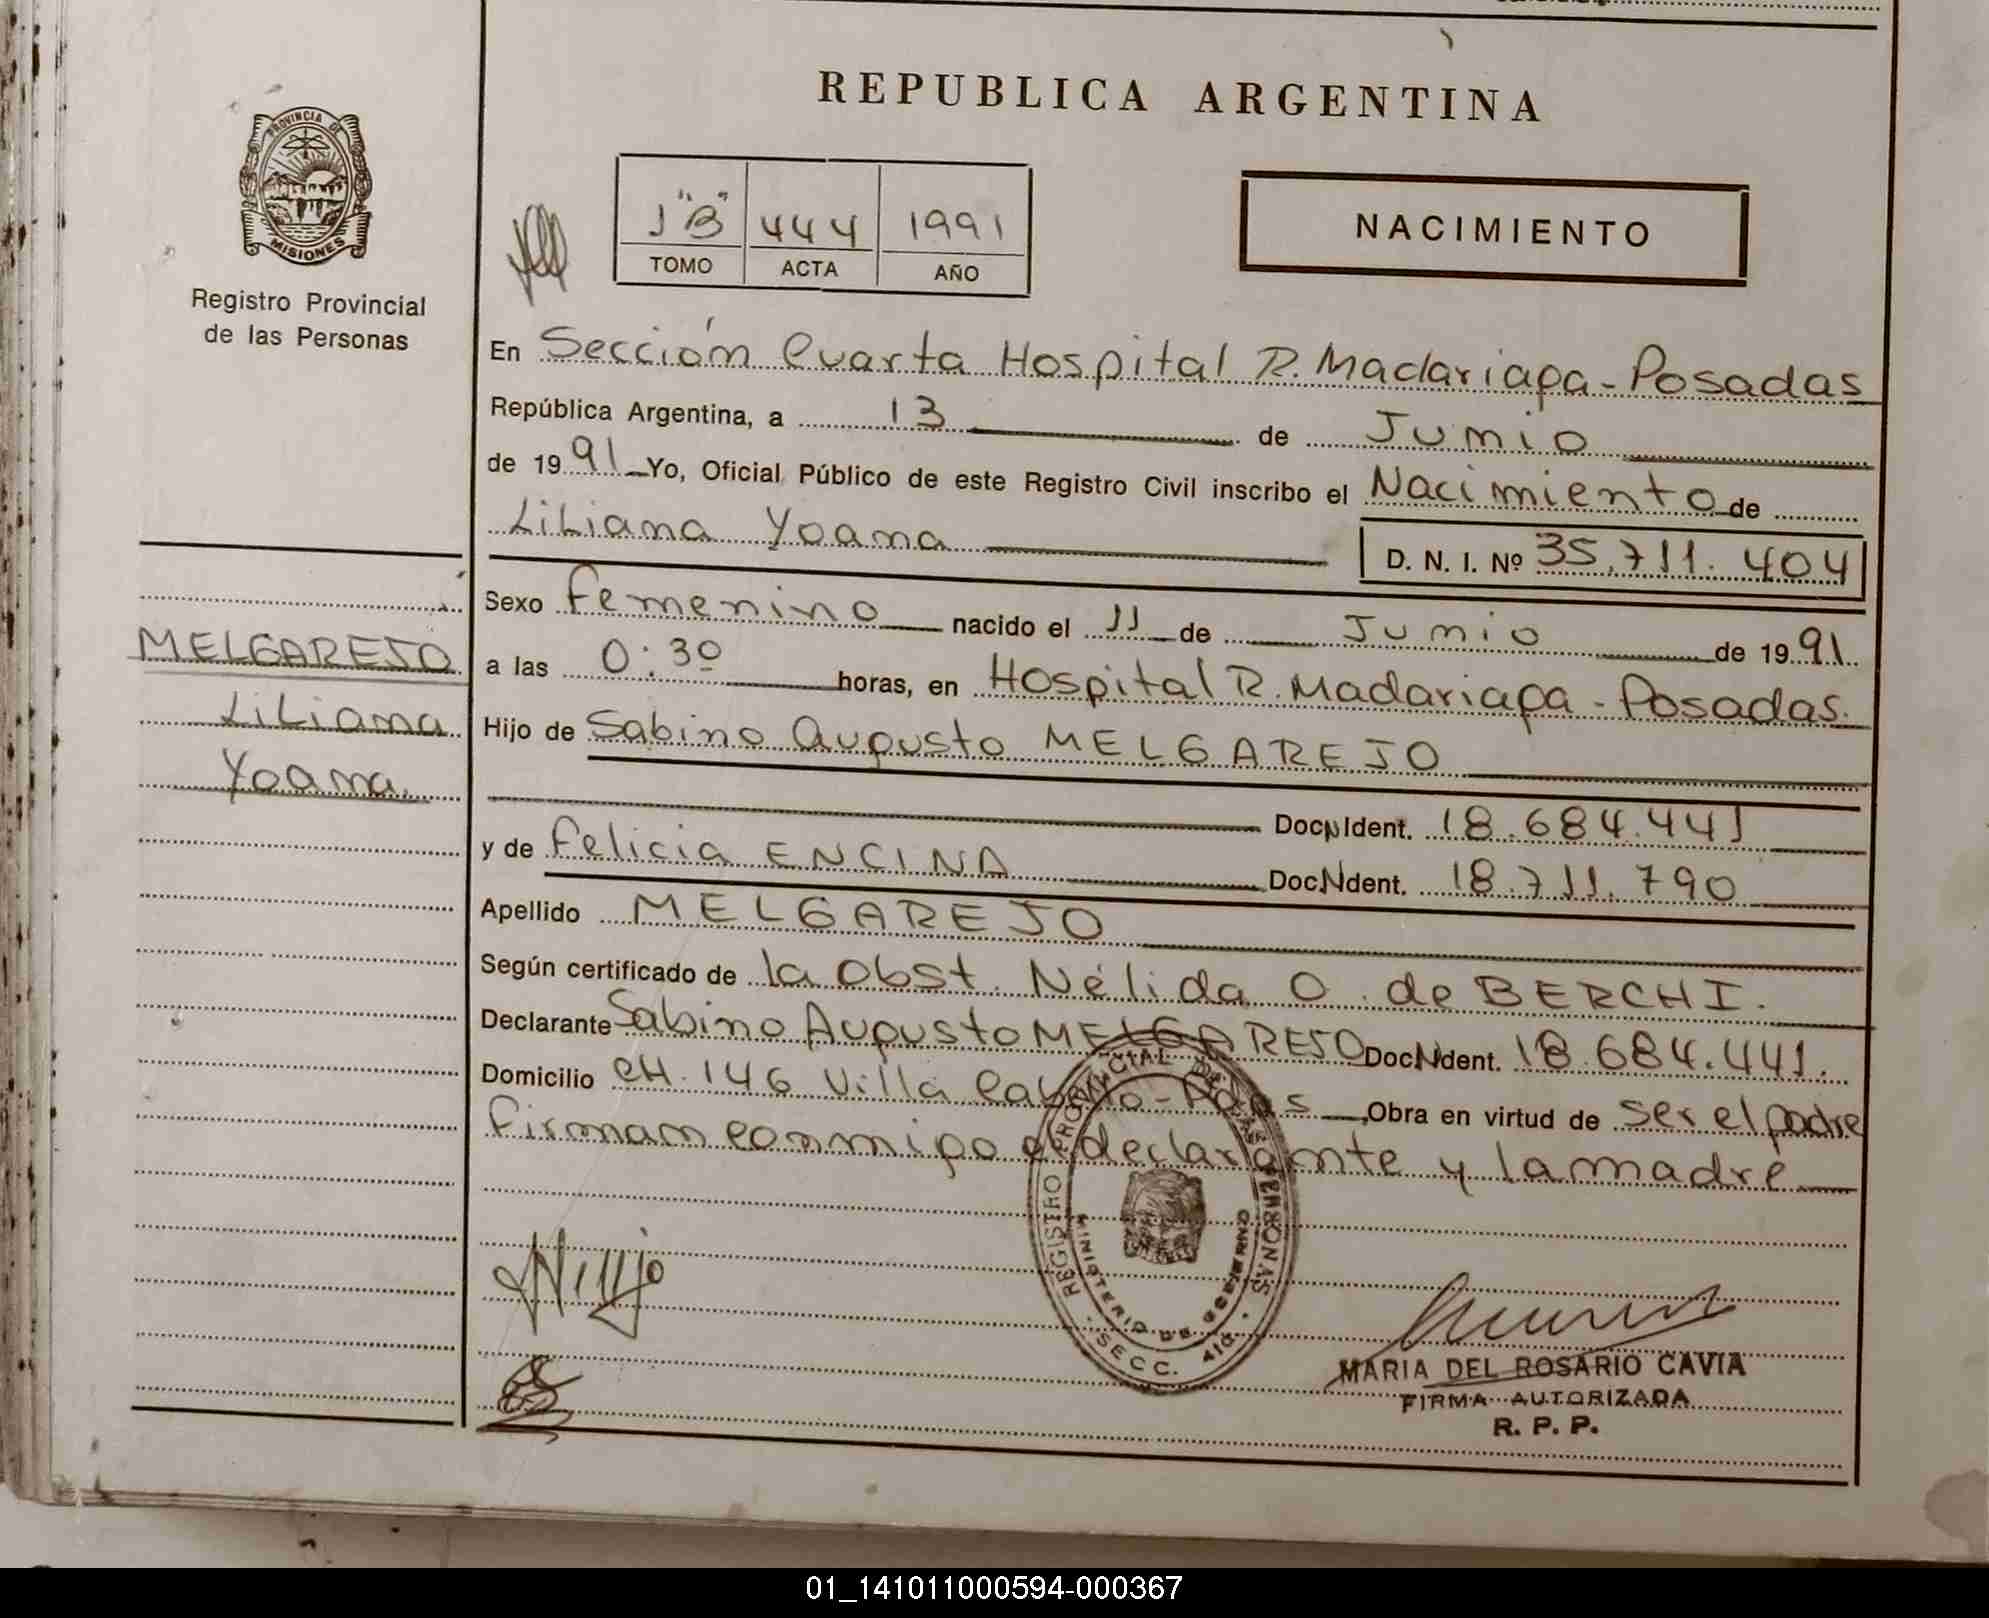 REPUBLICA ARGENTINA
PROVINCIA DE
MISIONES
Registro Provincial
de las Personas
1 "B" 444 1991
TOMO ACTA AÑO
NACIMIENTO
En Sección Cuarta Hospital R. Madariaga - Posadas
República Argentina, a 13 de Junio
de 1991 Yo, Oficial Público de este Registro Civil inscribo el Nacimiento de
Liliana Yoana
D. N. I. Nº 35.711.404
Sexo Femenino nacido el 11 de Junio de 1991
a las 0:30 horas, en Hospital R. Madariaga - Posadas.
Hijo de Sabino Augusto MELGAREJO
Doc. Ident. 18.684.441
y de Felicia ENCINA Doc. Ident. 18.711.790
Apellido MELGAREJO
Según certificado de la Obst. Nélida O. de BERCHI.
Declarante Sabino Augusto MELGAREJO Doc. Ident. 18.684.441.
Domicilio CH. 146 Villa Cabello - Pdas Obra en virtud de ser el padre
Firman conmigo el declarante y la madre
MELGAREJO
Liliana
Yoana.
REGISTRO PROVINCIAL DE LAS PERSONAS
MINISTERIO DE GOBIERNO
SECC. 4ta.
MARIA DEL ROSARIO CAVIA
FIRMA AUTORIZADA
R. P. P.
01_141011000594-000367